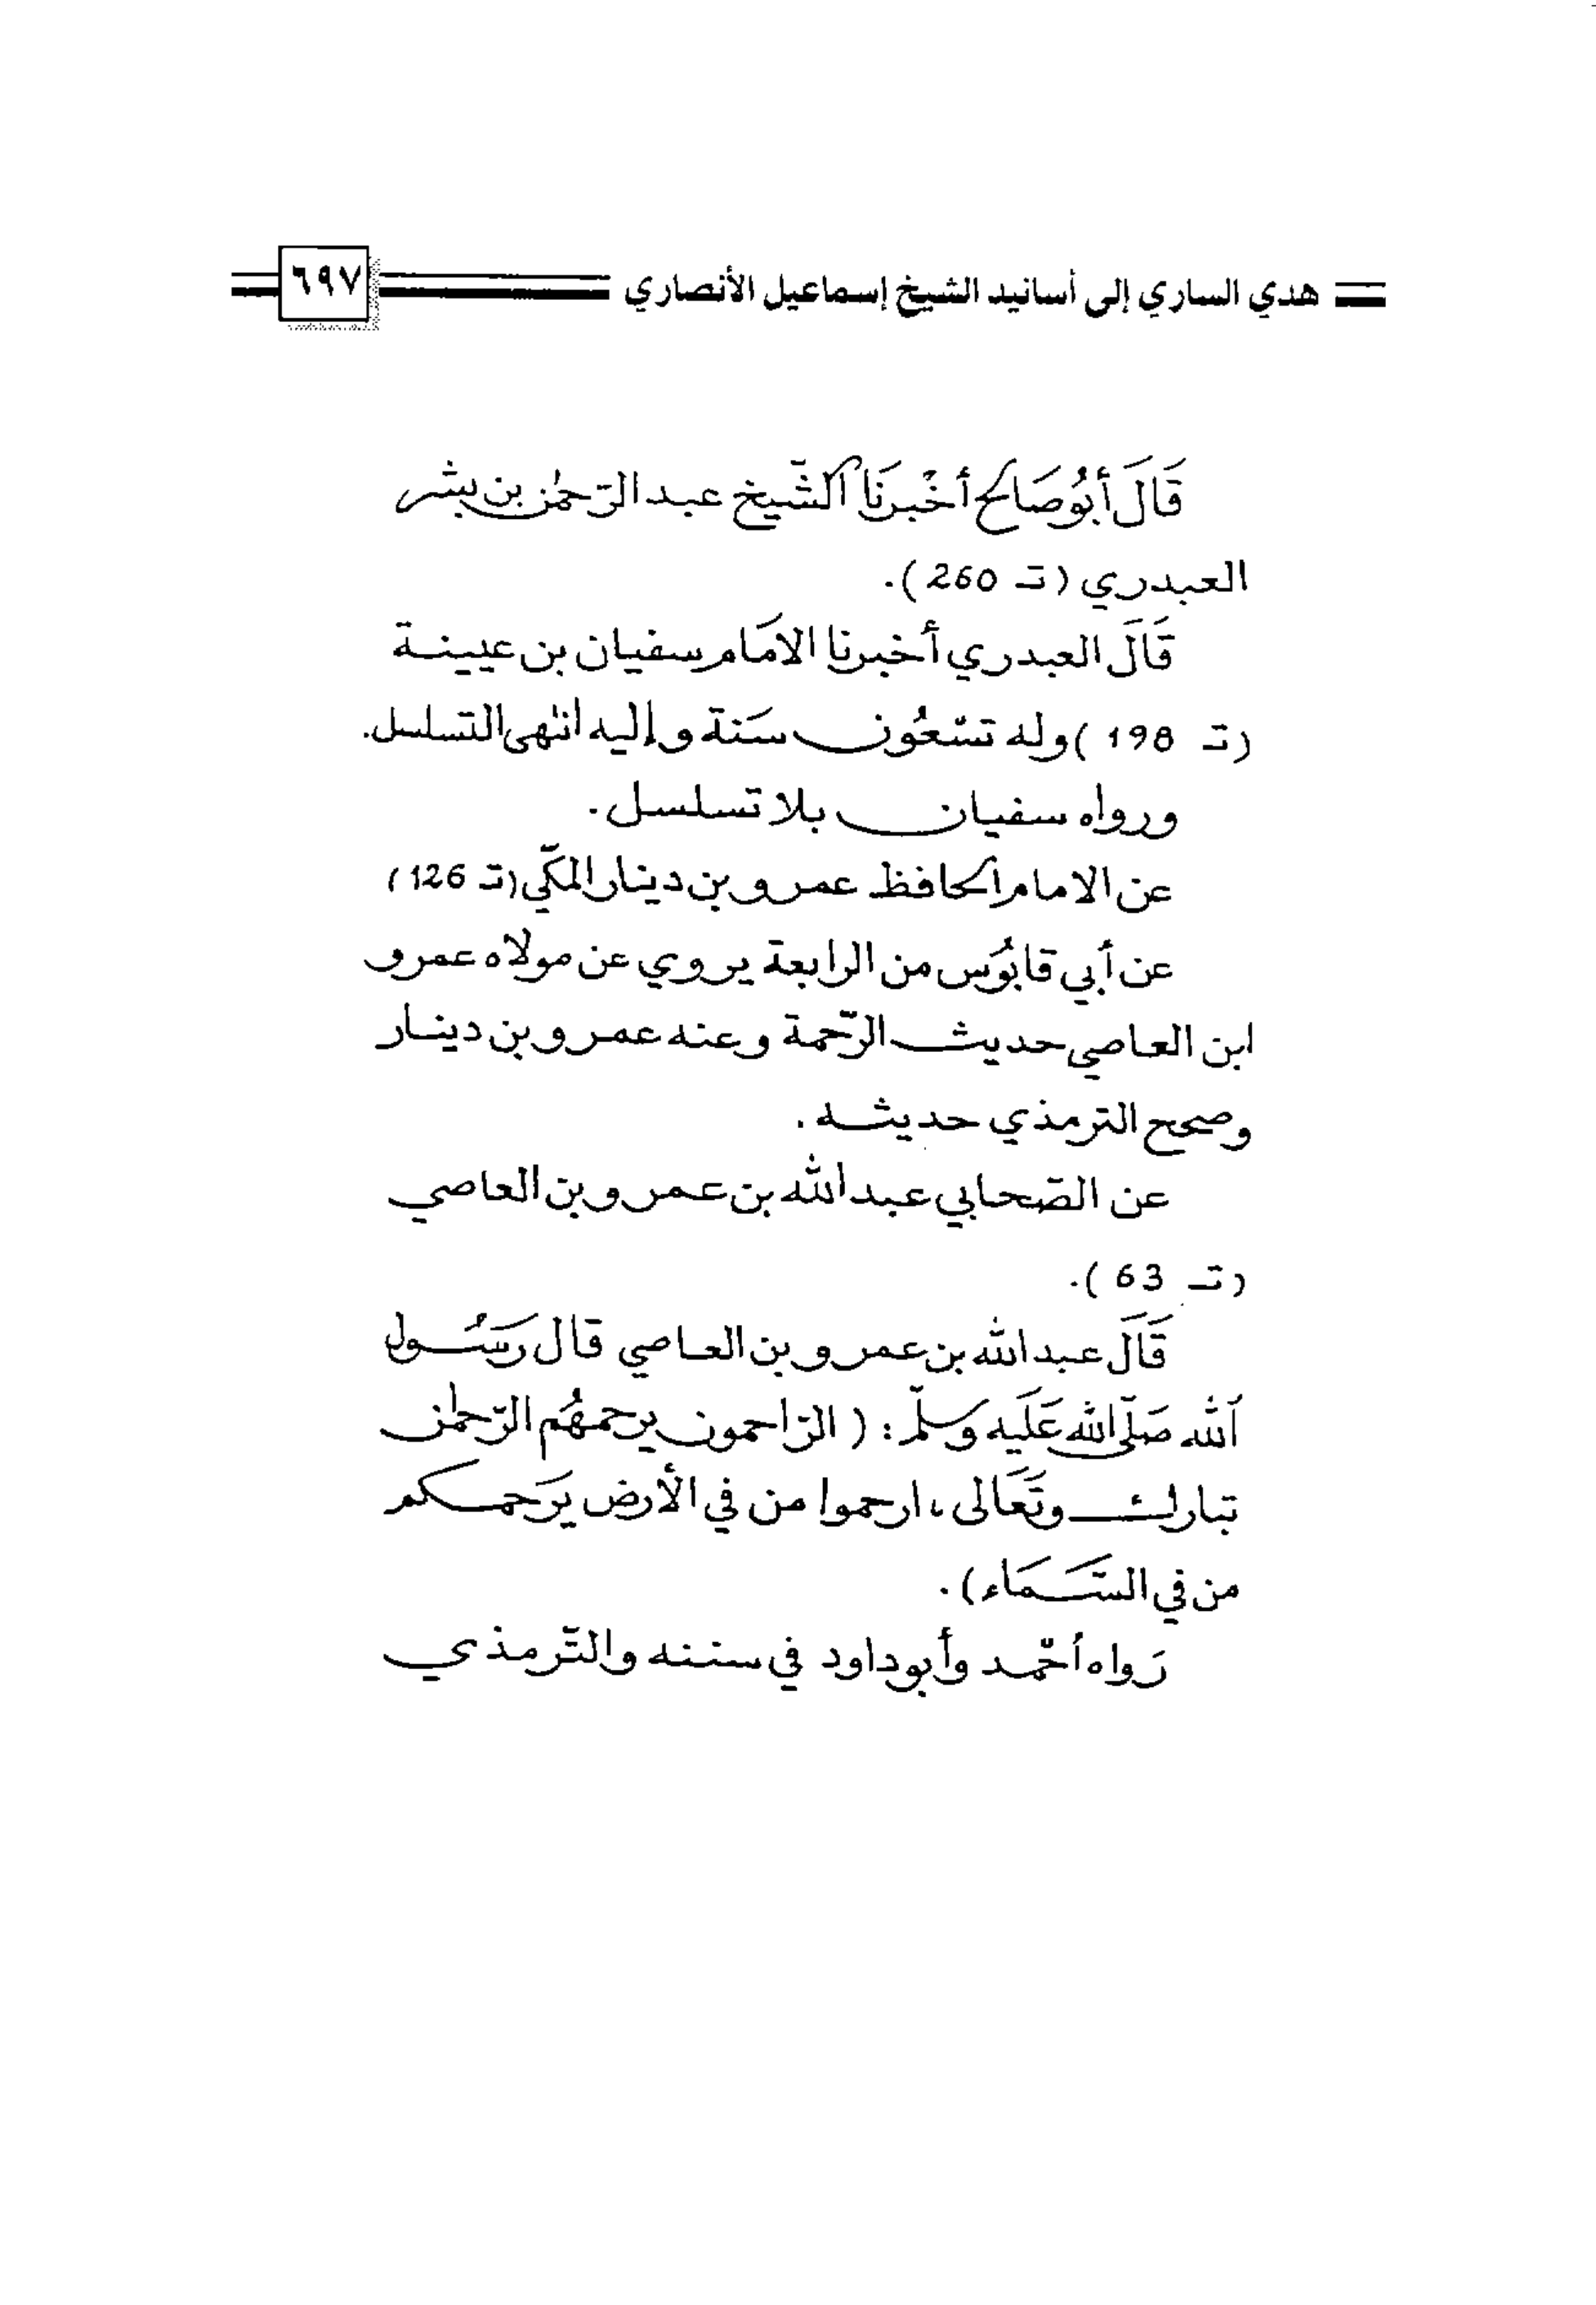 هدي الساري إلى أسانيد الشيخ إسماعيل الأنصاري ٦٩٧
قَالَ أبُو صَالح أخْبرنَا الشّيخ عبد الرّحمٰن بن بشر
العبدري (تـ 260).
قَالَ العبدري أخبرنا الامَام سفيان بن عيينة
(تـ 198) وله تسْعُون سَنة وإليه انتهى التسلسل.
ورواه سفيان بلا تسلسل.
عن الامام الحافظ عمرو بن دينار المكّي (تـ 126)
عن أبي قابُوَس من الرابعة يروي عن مولاه عمرو
ابن العاصي حديث الرّحمة وعنه عمرو بن دينار
وصحح الترمذي حديثه.
عن الصّحابي عبد الله بن عمرو بن العاصي
(تـ 63).
قَالَ عبد الله بن عمرو بن العاصي قال رَسُول
ٱلله صَلّى الله عَلَيه وَسلّم: (الرّاحمون يرحمهُم الرّحمٰن
تبارك وتَعَالى، ارحموا من في الأرض يَرحمكم
من في السَّمَاء).
رَواه أحْمد وأبو داود في سننه والتّرمذي